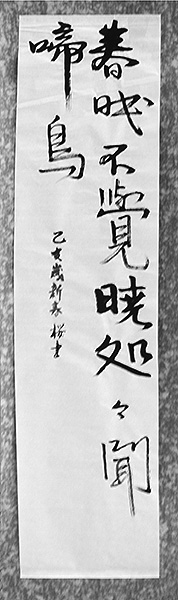 春眠不覺暁処々聞
啼鳥
乙亥歳新春 書